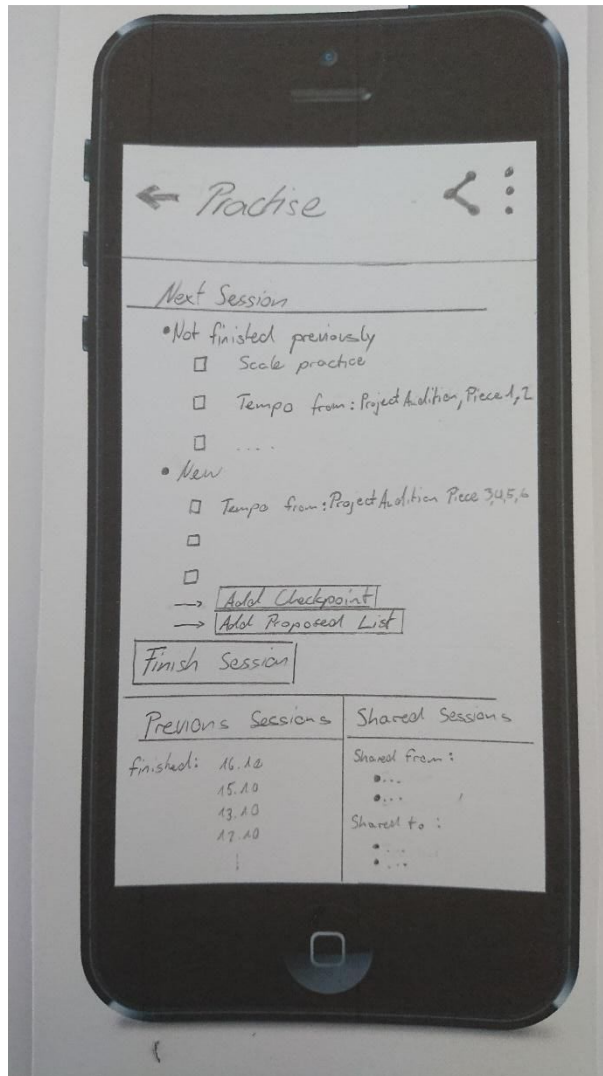 Practise
Next Session
• Not finished previously
Scale practice
Tempo from: Project Audition, Piece 1, 2
....
• New
Tempo from: Project Audition Piece 3,4,5,6
→ Add Checkpoint
→ Add Proposed List
Finish Session
Previous Sessions
finished: 16.10
15.10
13.10
12.10
Shared Sessions
Shared from:
•...
•...
Shared to:
•...
•...